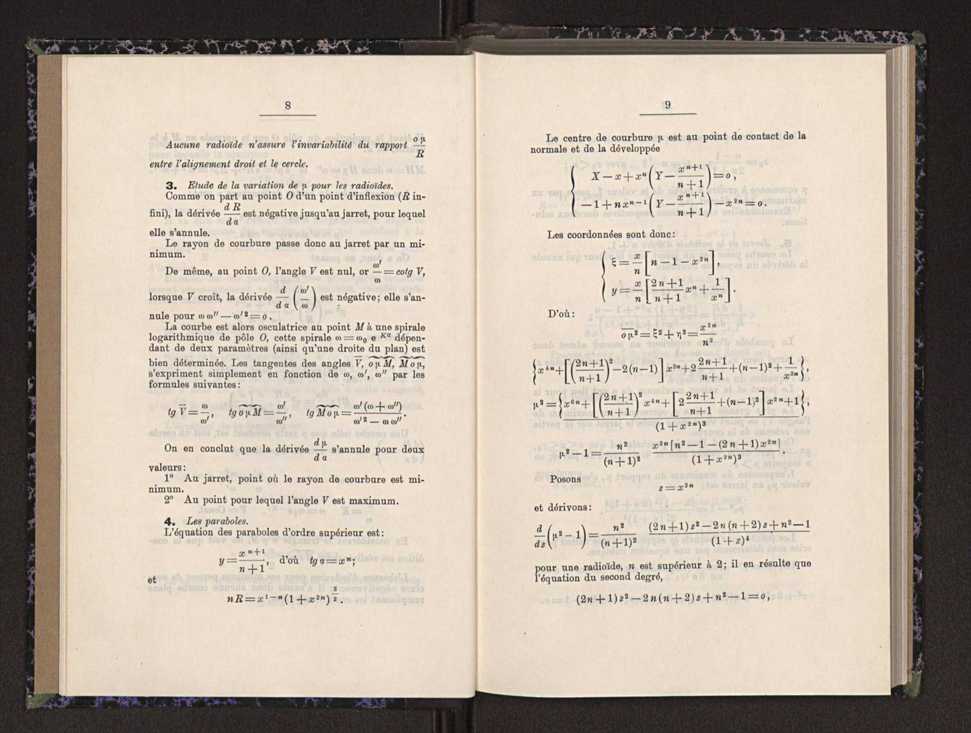 8
Aucune radioïde n'assure l'invariabilité du rapport oμ/R
entre l'alignement droit et le cercle.
3. Etude de la variation de μ pour les radioïdes.
Comme on part au point O d'un point d'inflexion (R in-
fini), la dérivée dR/da est négative jusqu'au jarret, pour lequel
elle s'annule.
Le rayon de courbure passe donc au jarret par un mi-
nimum.
De même, au point O, l'angle V est nul, or ω'/ω = cotg V,
lorsque V croît, la dérivée d/da (ω'/ω) est négative; elle s'an-
nule pour ω ω'' — ω'² = o.
La courbe est alors osculatrice au point M à une spirale
logarithmique de pôle O, cette spirale ω = ω₀ e ᴷᵃ dépen-
dant de deux paramètres (ainsi qu'une droite du plan) est
bien déterminée. Les tangentes des angles V, o μ M, M o μ,
s'expriment simplement en fonction de ω, ω', ω'' par les
formules suivantes:
tg V = ω/ω', tg o μ M = ω'/ω'', tg M o μ = ω'(ω + ω'')/(ω'² — ω ω'').
On en conclut que la dérivée dμ/da s'annule pour deux
valeurs:
1º Au jarret, point où le rayon de courbure est mi-
nimum.
2º Au point pour lequel l'angle V est maximum.
4. Les paraboles.
L'équation des paraboles d'ordre supérieur est:
y = x^(n+1)/(n+1), d'où tg a = x^n;
et
n R = x^(1-n) (1 + x^(2n))^(3/2).
9
Le centre de courbure μ est au point de contact de la
normale et de la développée
{ X — x + x^n (Y — x^(n+1)/(n+1)) = o,
— 1 + n x^(n-1) (Y — x^(n+1)/(n+1)) — x^(2n) = o.
Les coordonnées sont donc:
{ ξ = x/n [n — 1 — x^(2n)],
y = x/n [(2n+1)/(n+1) x^n + 1/x^n].
D'où:
oμ² = ξ² + η² = x^(2n)/n²
{x^(4n) + [((2n+1)/(n+1))² — 2(n—1)] x^(2n) + 2 (2n+1)/(n+1) + (n—1)² + 1/x^(2n)},
μ² = {x^(6n) + [((2n+1)/(n+1))² x^(4n) + [2 (2n+1)/(n+1) + (n—1)²] x^(2n) + 1}, / (1 + x^(2n))³
μ² — 1 = n²/(n+1)² x^(2n) [n² — 1 — (2n+1) x^(2n)]/(1 + x^(2n))³.
Posons
z = x^(2n)
et dérivons:
d/dz (μ² — 1) = n²/(n+1)² ((2n+1) z² — 2n(n+2) z + n² — 1)/(1+z)⁴
pour une radioïde, n est supérieur à 2; il en résulte que
l'équation du second degré,
(2n+1) z² — 2n(n+2) z + n² — 1 = o,